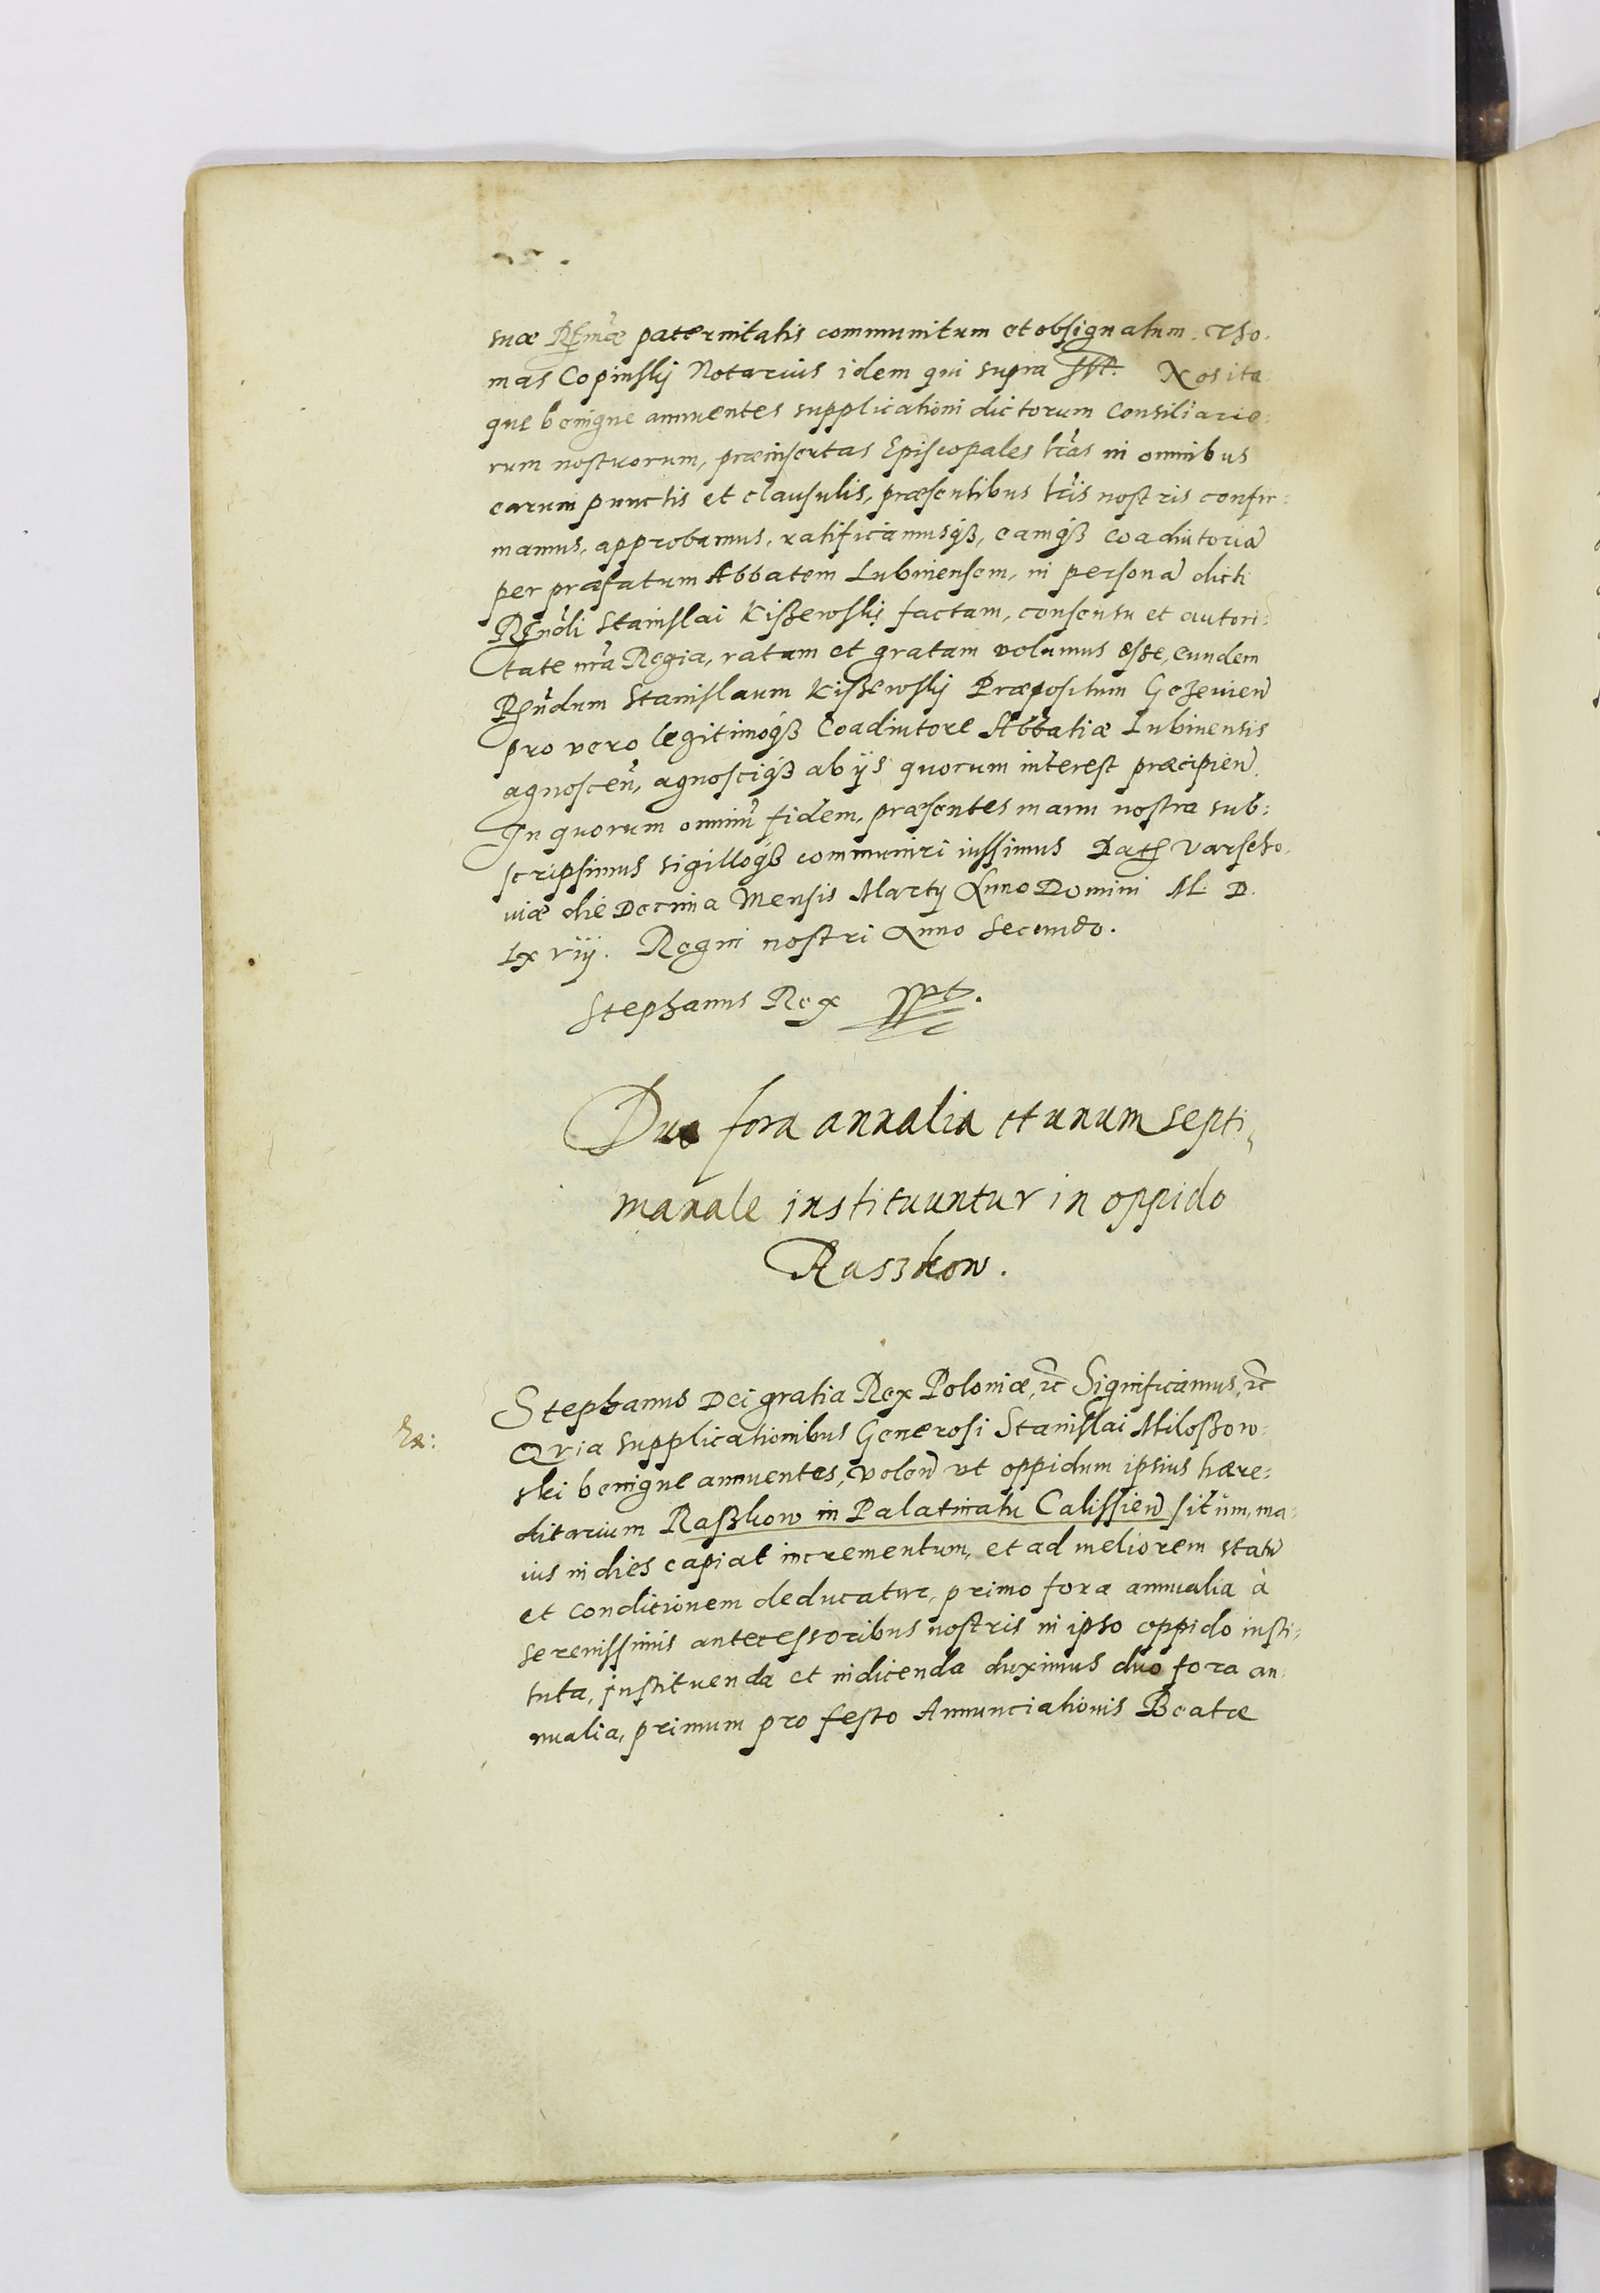 suæ Rs̃mæ paternitatis communitum et obsignatum. Tho-
mas Copinskij Notarius idem qui supra Nos ita
que benigne annuentes supplicationi dictorum Consiliario:
rum nostrorum, præinsertas Episcopales lr̃as in omnibus
earum punctis et clausulis, præsentibus lr̃is nostris confir:
mamus, approbamus, ratificamusqȝ, eamqȝ coadiutoriã
per præfatum Abbatem Lubinensem, in personã dicti
Rñdi Stanislai Kißewskij factam, consensu et autori:
tate nr̃a Regia, ratam et gratam volumus esse, eundem
Rñdum Stanislaum Kißewskij Præpositum
pro vero legitimoqȝ Coadiutore Abbatiæ Lubinensis
agnosceñ, agnosciqȝ ab ijs quorum interest præcipieñ.
In quorum omniũ fidem, præsentes manu nostra sub:
scripsimus sigilloqȝ communiri iussimus Dat Varscho-
uiæ die Decima Mensis Martij Anno Domini M. D.
Lxxviij. Regni nostri Anno Secundo.
Stephanus Rex
Duo fora annalia et unum septi,
manale instituuntur in oppido
Raszkow.
Stephanus Dei gratia Rex Poloniæ, ꝛc̃ Significamus, ꝛc̃
Quia supplicationibus Generosi Stanislai Miloßow:
ski benigne annuentes, voleñ ut oppidum ipsius hære:
ditarium Raßkow in Palatinatu Calissieñ situm, ma:
ius in dies capiat incrementum, et ad meliorem statũ
et conditionem deducatur, primo fora annualia à
serenissimis antecessoribus nostris in ipso oppido insti:
tuta, instituenda et indicenda duximus duo fora an:
nualia, primum pro festo Annunciationis Beatæ